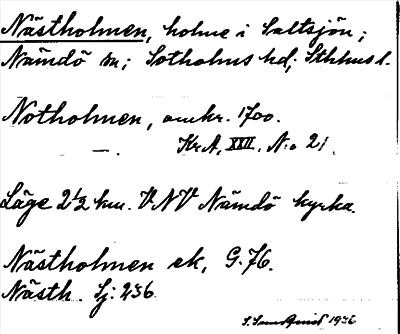 Nästholmen, holme i Saltsjön;
Nämdö sn; Sotholms hd; Sthlms l.
Notholmen, omkr. 1700.
—. KrA, XXII, N:o 21.
Läge 2 1/2 km. VNV Nämdö kyrka.
Nästholmen ek, G. 76.
Nästh. Sj: 236
1936